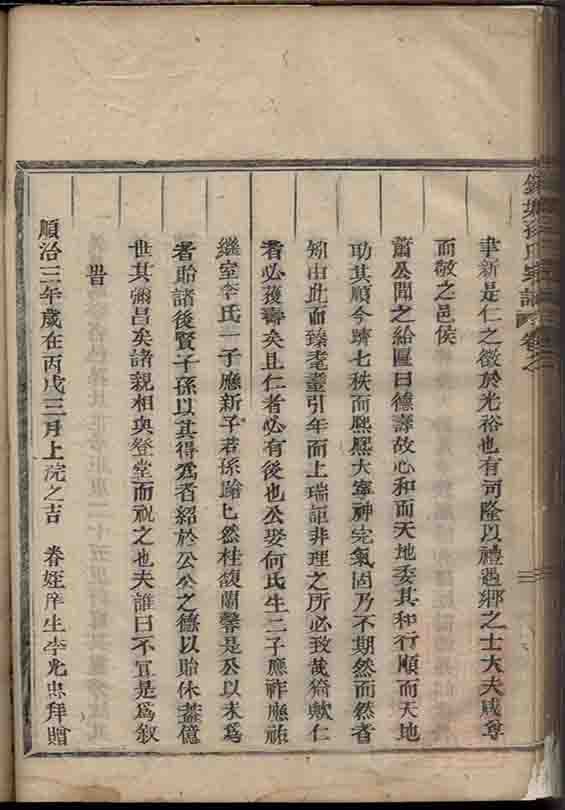 聿新是仁之徵於光裕也有司隆以禮遇鄉之士大夫咸尊
而敬之邑侯
蕭公聞之給匾曰德壽故心和而天地委其和行順而天地
助其順今躋七秩而熙熙大寧神完氣固乃不期然而然者
知由此而臻耄耋引年而上瑞詎非理之所必致哉猗歟仁
者必獲壽矣且仁者必有後也公娶何氏生二子應祚應祐
繼室李氏一子應新子若孫 匕然桂馥蘭馨是公以未為
者貽諸後賢子孫以其得為者紹於公公之德以貽休蓋億
世其彌昌矣諸親相與登堂而祝之也夫誰曰不宜是為敘
旹
順治三年歲在丙戌三月上浣之吉 眷姪庠生李光忠拜贈
徐氏宗譜 卷之